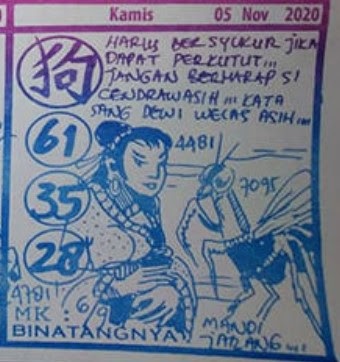 Kamis 05 Nov 2020
HARUS BERSYUKUR JIKA
DAPAT PERKUTUT...
JANGAN BERHARAP SI
CENDRAWASIH... KATA
SANG DEWI WELAS ASIH...
狗
61
35
28
4481
7095
4781
MK : 6/9
BINATANGNYA
MANDI
JARANG...